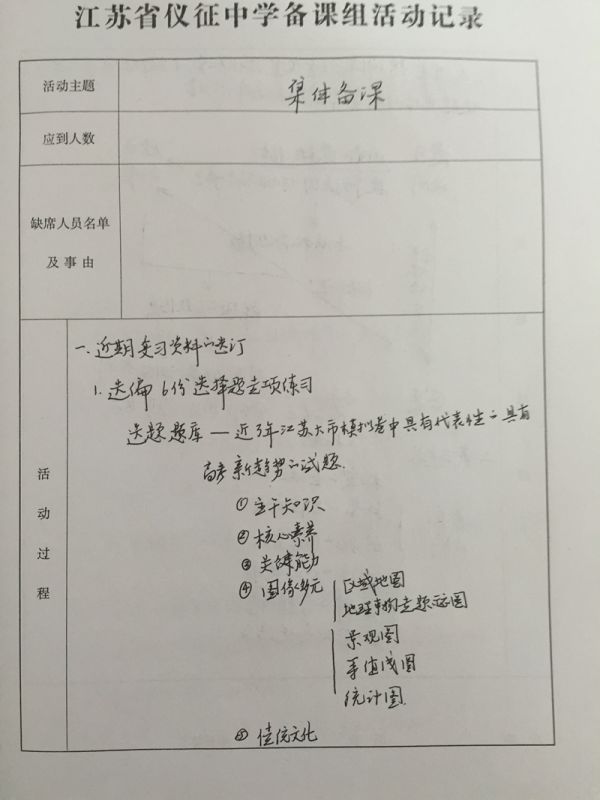 江苏省仪征中学备课组活动记录
活动主题
集体备课
应到人数
缺席人员名单
及事由
活动过程
一.近期复习资料的选订
1.选编6份选择题专项练习
选题题库—近3年江苏大市模拟卷中具有代表性、具有
高考新趋势的试题.
①主干知识
②核心素养
③关键能力
④图像多元
区域地图
地理事物专题示意图
景观图
等值线图
统计图.
⑤传统文化